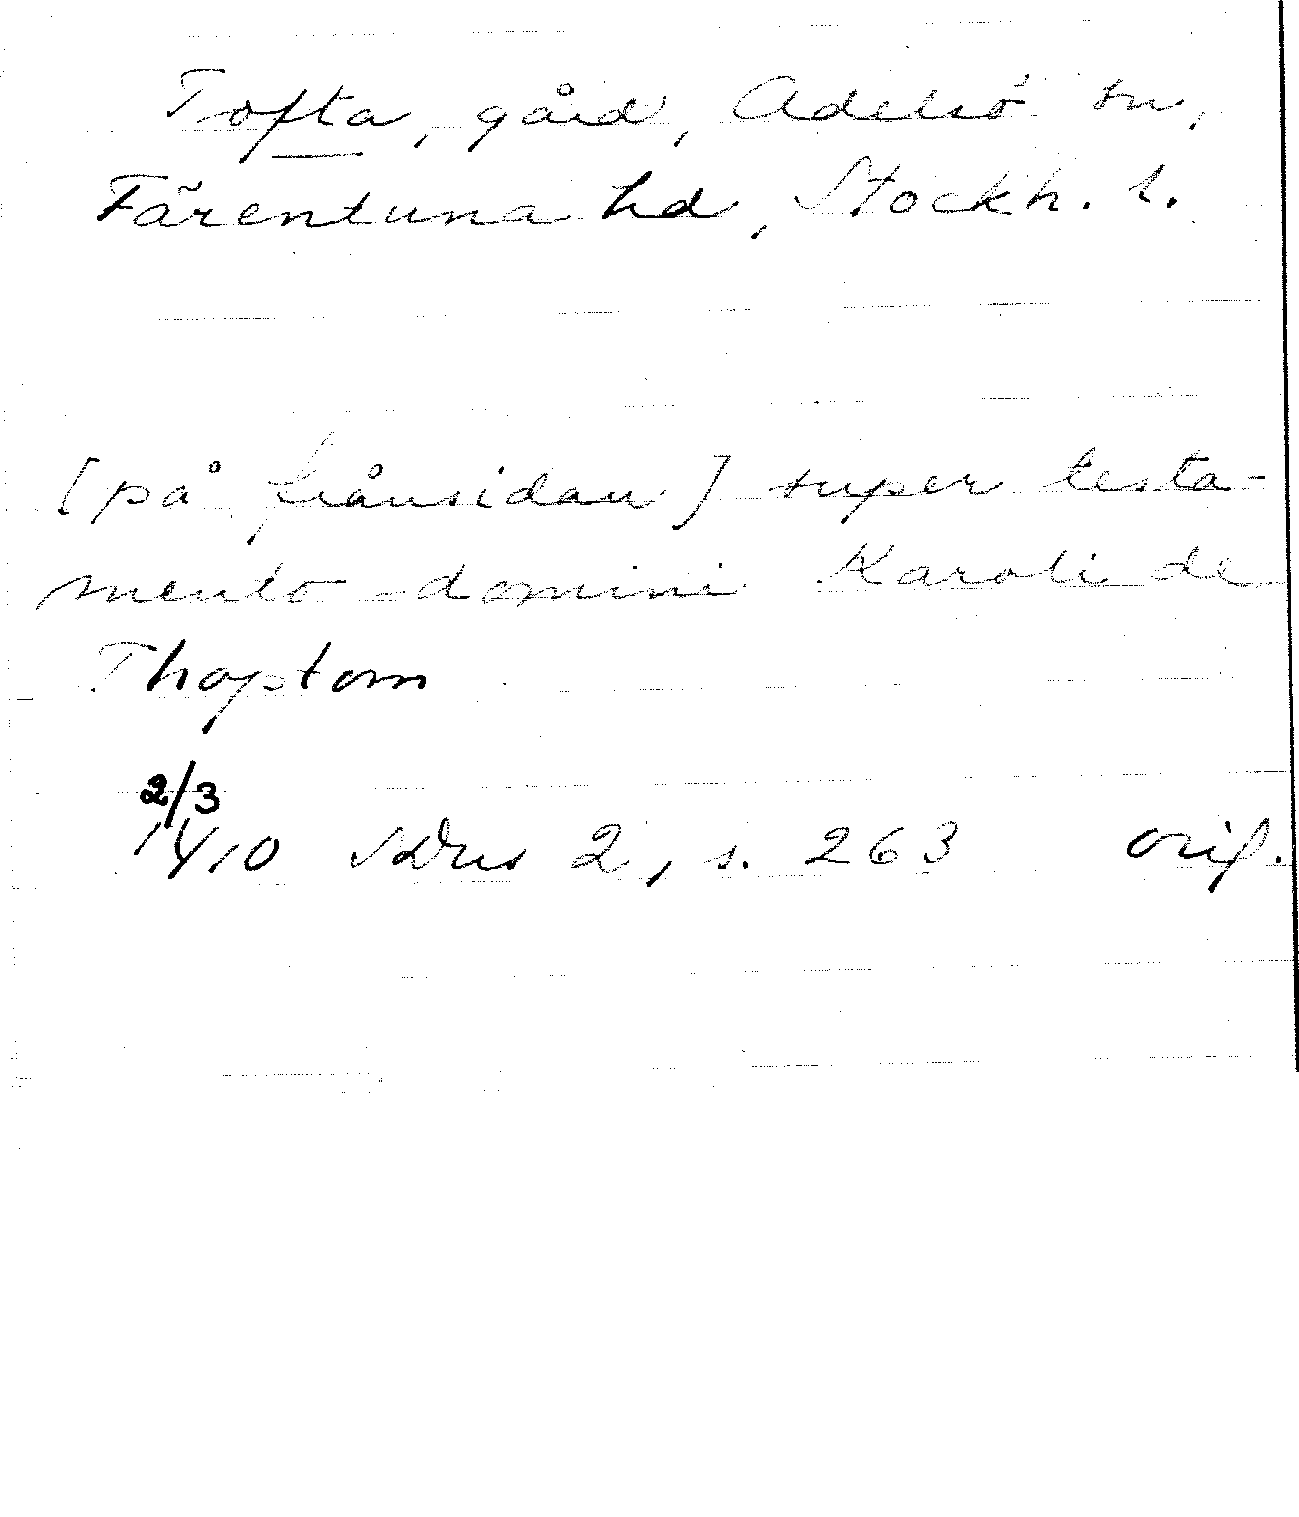 Tofta, gård, Adelsö sn,
Färentuna hd, Stockh. l.
[på frånsidan] super testa-
mento domini Karoli de
Thoptom
2/3
1410 SDns 2, s. 263 orig.